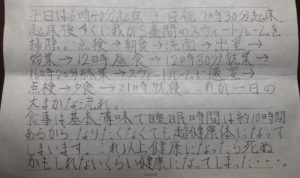 平日は6時40分起床、土日祝7時30分起床。
起床後すぐに我が昼間のスウィートルームを
掃除。点検→朝食→洗面→出室→
始業→12時昼食→12時30分就業→
16時20分終業→スウィートルームに還室→
点検→夕食→21時就寝。これが一日の
大まかな流れ。
食事は基本薄味で睡眠時間は約10時間
あるから、なりたくなくても超健康体になって
しまいます…これ以上健康になったら死ぬ
かもしれないくらい健康になってしまった・・・・。